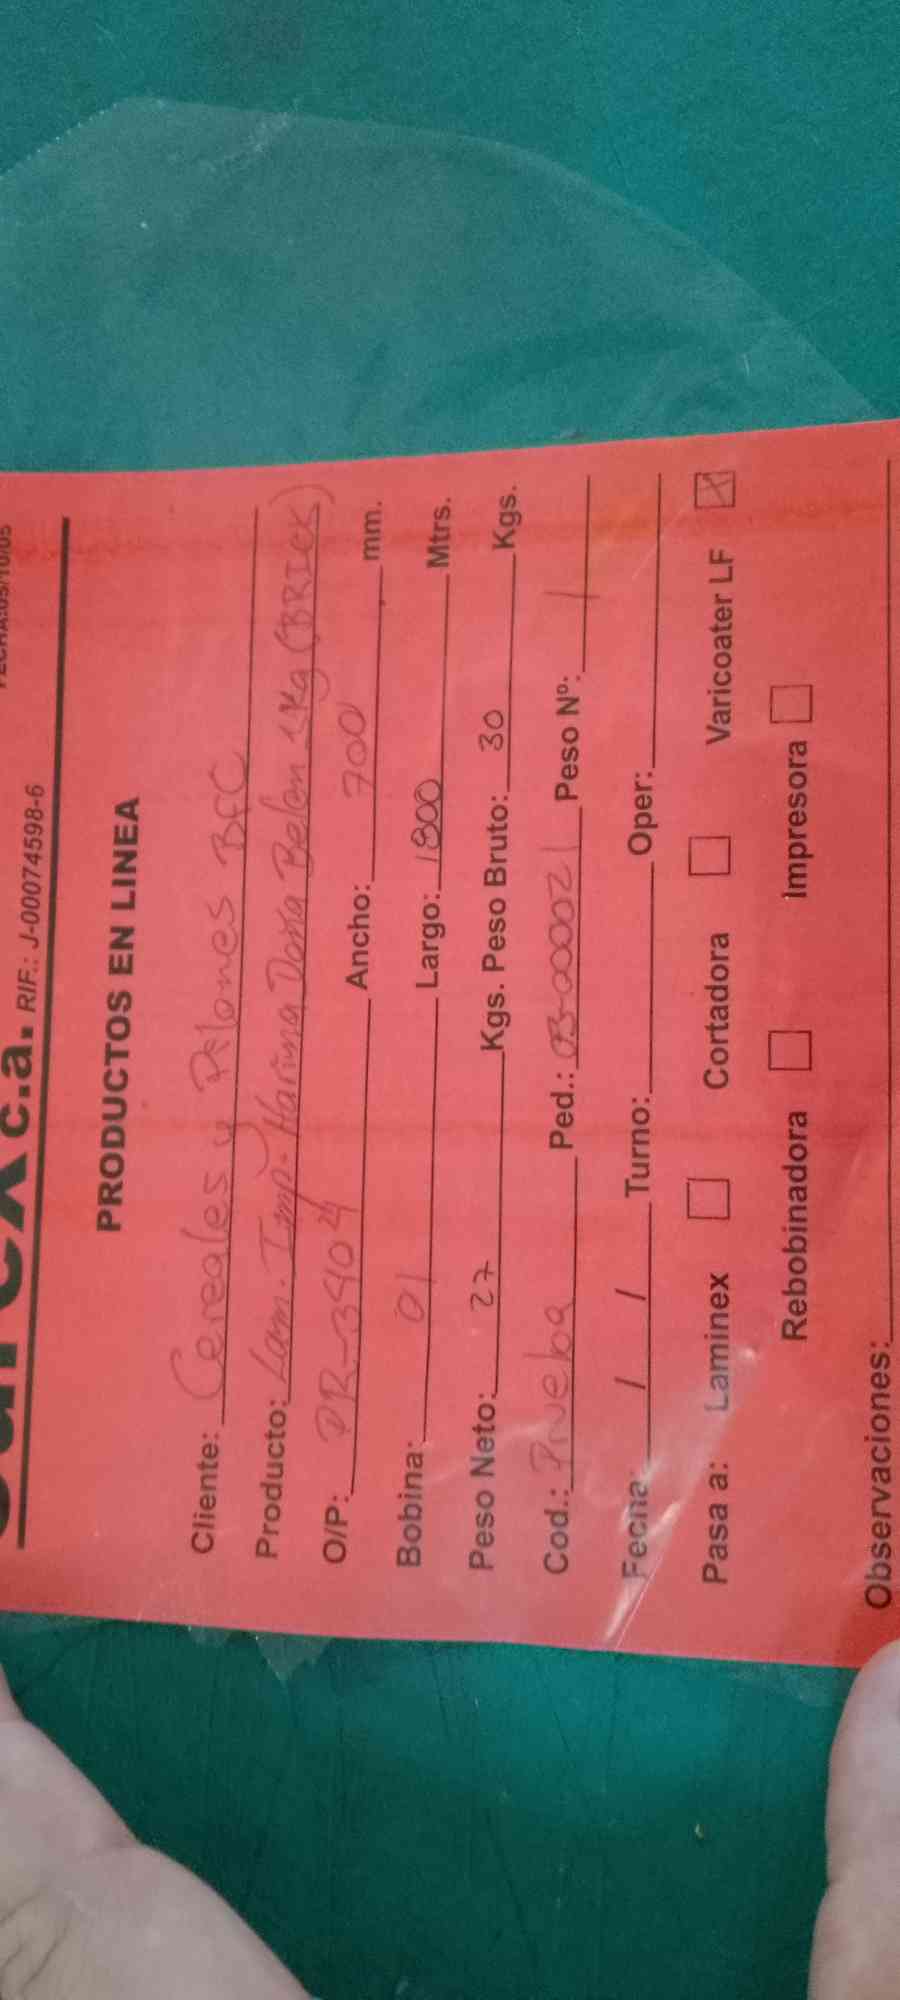 c.a. RIF.: J-00074598-6
PRODUCTOS EN LINEA
Cliente: Cereales y Pilones BFC
Producto: Lam. Imp. Harina Doña Belen 1Kg (BRICK)
O/P: PR-3404 Ancho: 700 mm.
Bobina: 01 Largo: 1800 Mtrs.
Peso Neto: 27 Kgs. Peso Bruto: 30 Kgs.
Cod.: Prueba Ped.: 03-00002 | Peso Nº: /
Fecha: / / Turno: Oper:
Pasa a: Laminex Cortadora Varicoater LF X
Rebobinadora Impresora
Observaciones: